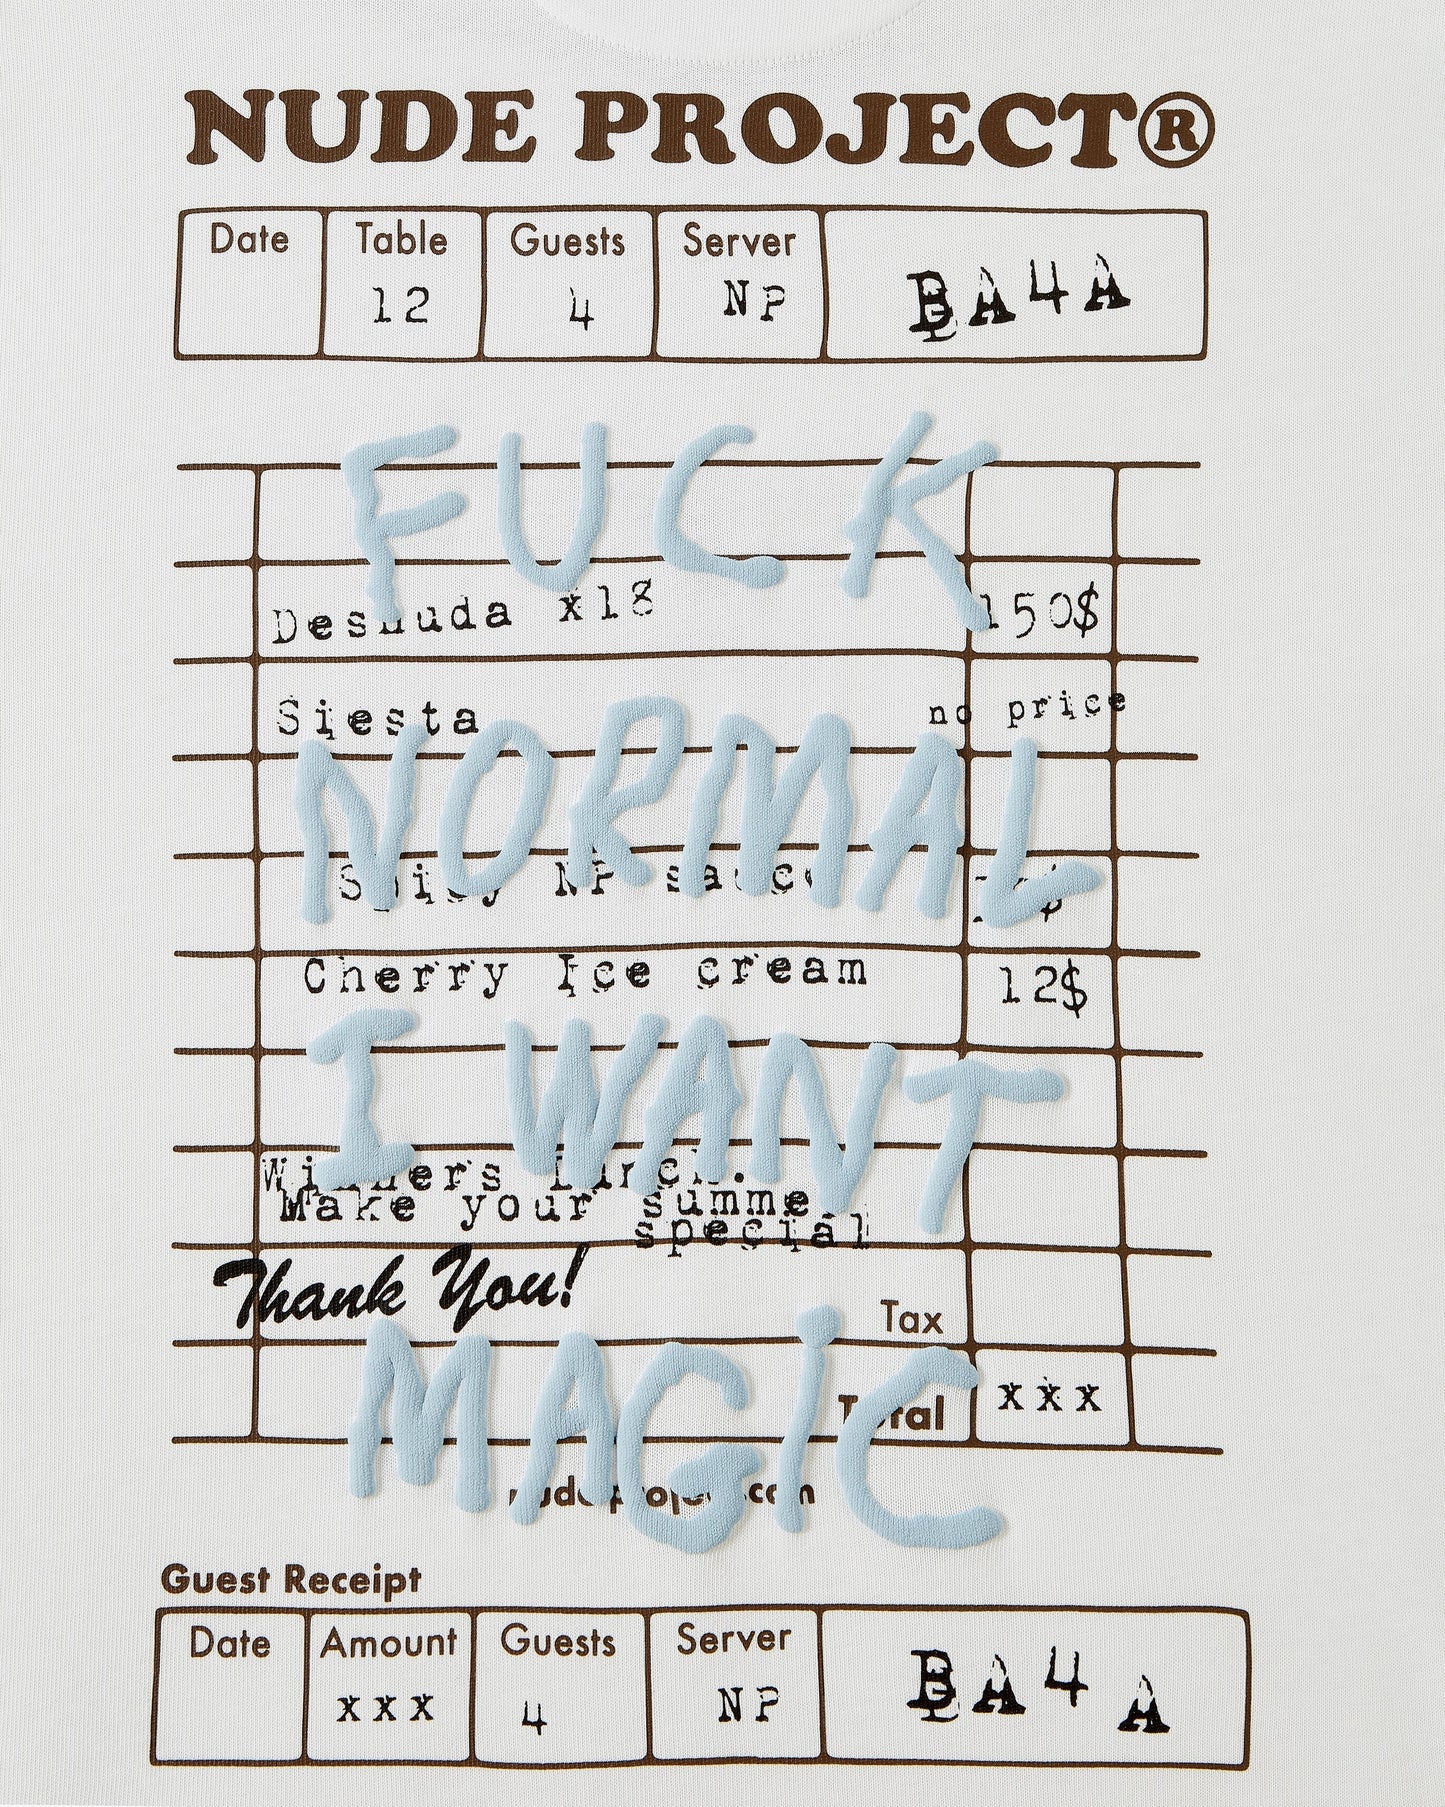 NUDE PROJECT®
Date Table Guests Server
12 4 NP BA4A
FUCK
Desnuda x18 150$
Siesta no price
NORMAL
Spicy NP sauce
Cherry Ice cream 12$
I WANT
Winners Lunch.
Make your summe
special
Thank You!
Tax
MAGIC
Total xxx
nudeproject.com
Guest Receipt
Date Amount Guests Server
xxx 4 NP BA4A